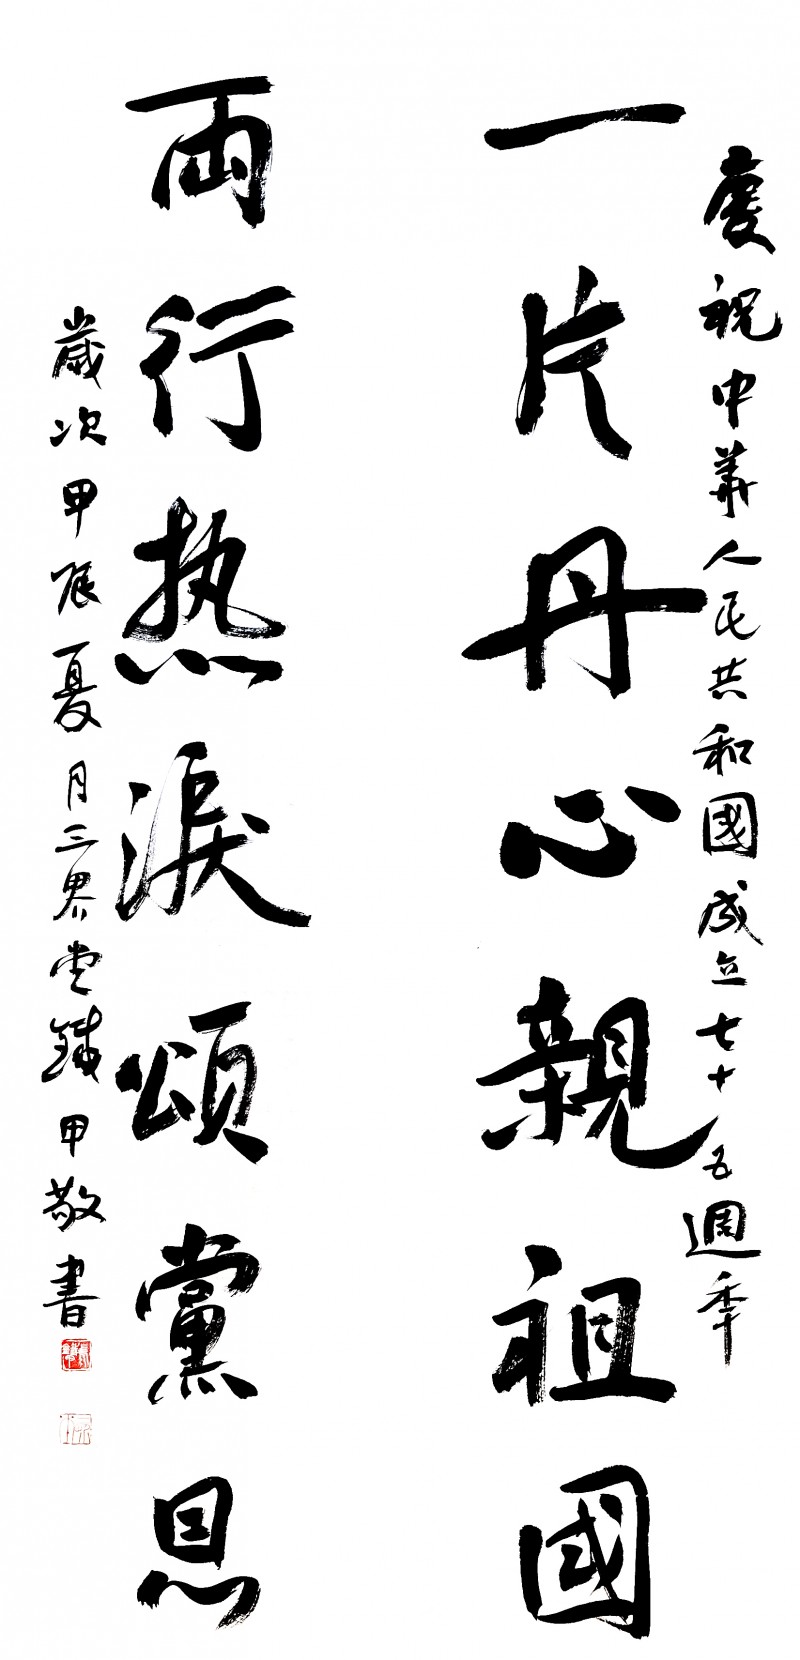 慶祝中華人民共和國成立七十五週年
一片丹心親祖國
兩行热淚頌黨恩
歲次甲辰夏月三界堂鐵甲敬書